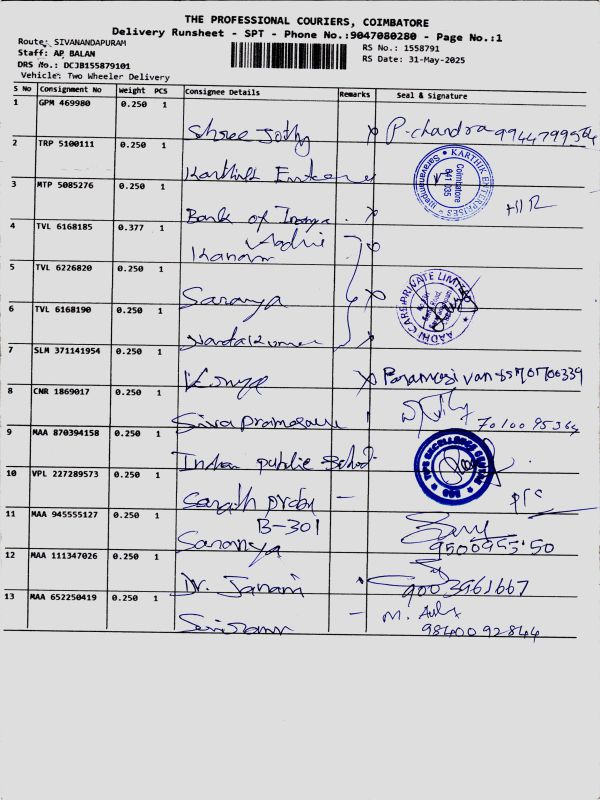 THE PROFESSIONAL COURIERS, COIMBATORE
Delivery Runsheet - SPT - Phone No.:9047080280 - Page No.:1
Route: SIVANANDAPURAM
Staff: AP BALAN
DRS No.: DCJB155879101
Vehicle: Two Wheeler Delivery
RS No.: 1558791
RS Date: 31-May-2025
S No Consignment No Weight PCS Consignee Details Remarks Seal & Signature
1 GPM 469980 0.250 1
Shree Jothy P. chandra
2 TRP 5100111 0.250 1
Karthik KARTHIK ENTERPRISES Coimatore 641 035
3 MTP 5085276 0.250 1
Bank of
4 TVL 6168185 0.377 1
Aadhi
5 TVL 6226820 0.250 1
Saranya AADHI CARE PRIVATE LIMITED
6 TVL 6168190 0.250 1
Nandakumar
7 SLM 371141954 0.250 1
8 CNR 1869017 0.250 1
70100 95364
9 MAA 870394158 0.250 1
Indian public School
10 VPL 227289573 0.250 1
Sarath prabu -
11 MAA 945555127 0.250 1
B-301
Saranya
12 MAA 111347026 0.250 1
Dr. Janani 9003961667
13 MAA 652250419 0.250 1
- M.
98400 92844